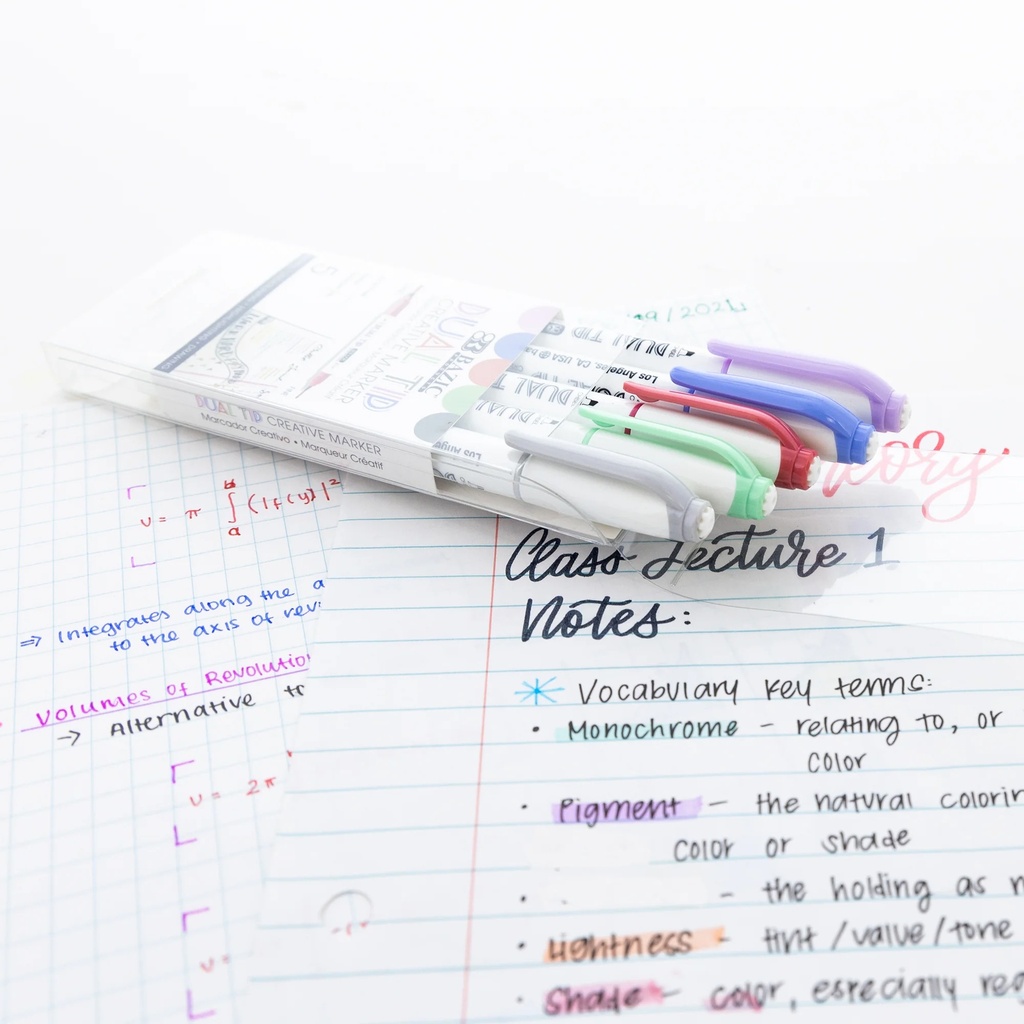 DUAL TIP
CREATIVE MARKER
BAZIC
5
DUAL TIP CREATIVE MARKER
Marcador Creativo • Marqueur Créatif
DUAL TIP
Los Angeles, CA, USA
DUAL TIP
Los Ange
/2021
υ = π ∫ (|f(y)|²
a
⇒ Integrates along the a
to the axis of rev
Volumes of Revolution
→ Alternative to
υ = 2π
υ =
eory
Class Lecture 1
Notes:
Vocabulary Key terms:
• Monochrome - relating to, or
color
• Pigment - the natural colorin
color or shade
• - the holding as
• Lightness - tint / value / tone
• Shade - color, especially reg